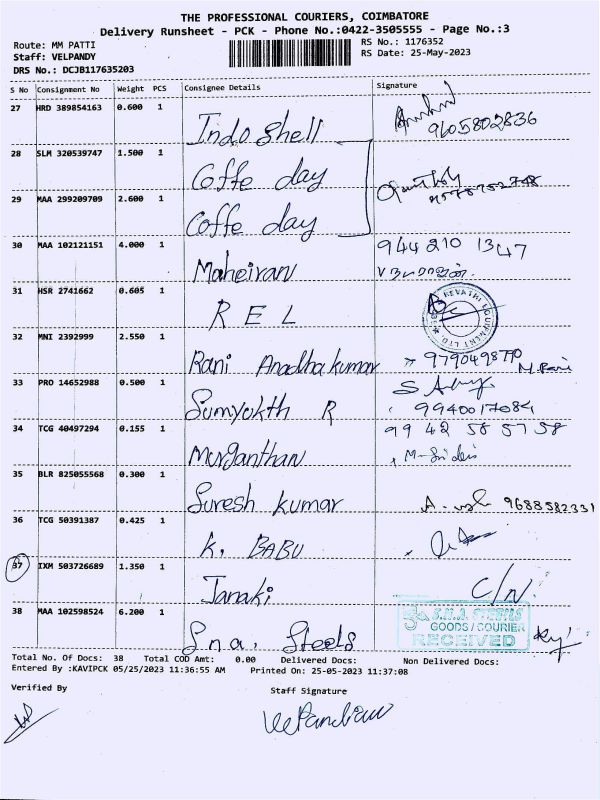 THE PROFESSIONAL COURIERS, COIMBATORE
Delivery Runsheet - PCK - Phone No.:0422-3505555 - Page No.:3
Route: MM PATTI
RS No.: 1176352
Staff: VELPANDY
RS Date: 25-May-2023
DRS No.: DCJB117635203
S No Consignment No Weight PCS Consignee Details Signature
27 HRD 389854163 0.600 1
Indo shell 9605802836
28 SLM 320539747 1.500 1
Coffe day
29 MAA 299209709 2.600 1
Coffe day
30 MAA 102121151 4.000 1 944 210 1347
Maheiran வரதராஜன்
31 HSR 2741662 0.605 1
R E L
REVATHI EQUIPMENT LTD.
32 MNI 2392999 2.550 1
Rani Anadha kumar M. Rani
33 PRO 14652988 0.500 1
Sumyukth R 9940017084
34 TCG 40497294 0.155 1 99 42 58 57 58
Murganthan
35 BLR 825055568 0.300 1
Suresh kumar 9688582331
36 TCG 50391387 0.425 1
K. BABU
37 IXM 503726689 1.350 1
Janaki C/N.
38 MAA 102598524 6.200 1
S.N.A. STEELS
GOODS / COURIER
RECEIVED
S.n.a. Steels
Total No. Of Docs: 38 Total COD Amt: 0.00 Delivered Docs: Non Delivered Docs:
Entered By :KAVIPCK 05/25/2023 11:36:55 AM Printed On: 25-05-2023 11:37:08
Verified By
Staff Signature